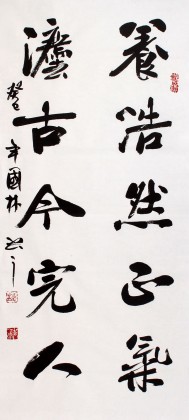 養浩然正氣
灋古今完人
癸巳年國林